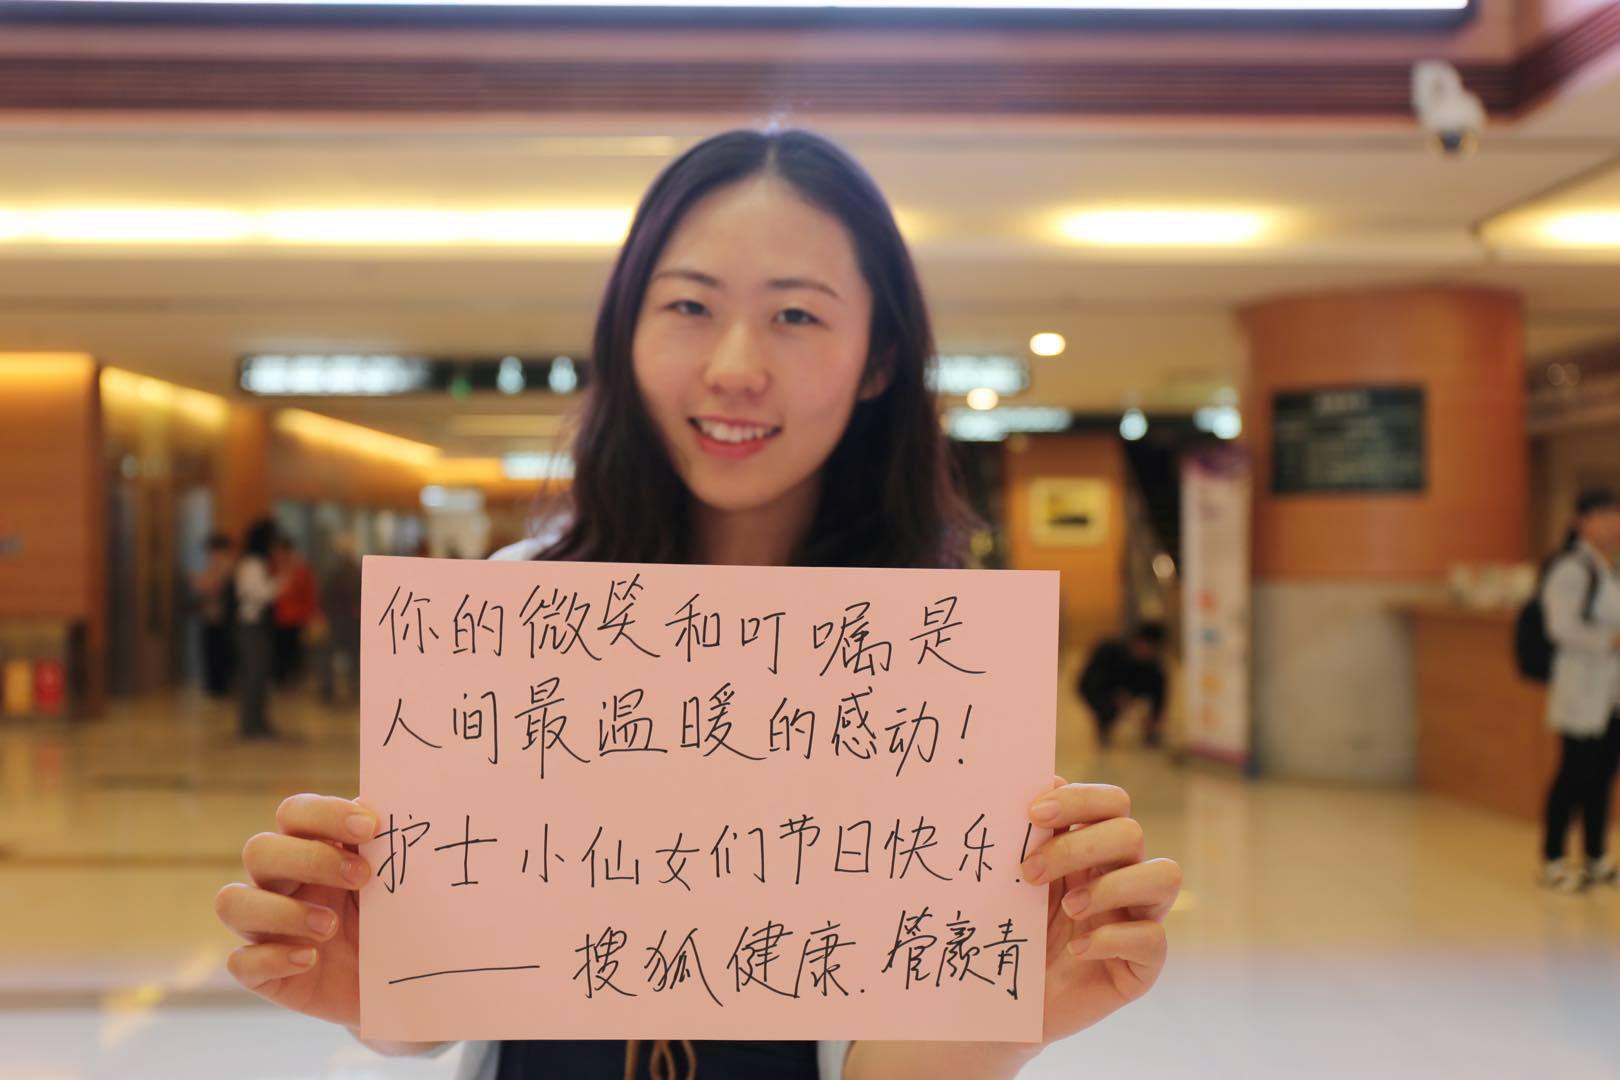 你的微笑和叮嘱是
人间最温暖的感动!
护士小仙女们节日快乐!
——搜狐健康.管颜青